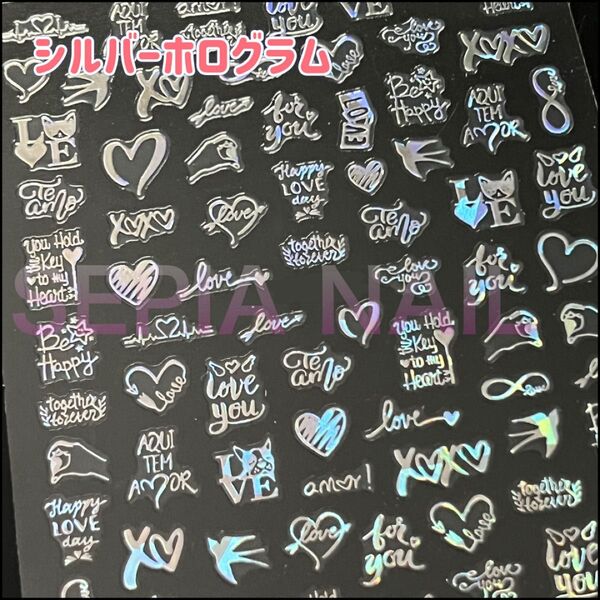 シルバーホログラム
love
you
AQUI
TEM
AMOR
love
you
XOXO
love
for
you
LOVE
Be
Happy
AQUI
TEM
AMOR
L VE
Te
amo
XOXO
love
Happy
LOVE
day
Te
amo
L VE
love
you
you Hold
the
Key
to my
Heart
together
forever
love
love
you
for
you
SEPIA NAIL
Be
Happy
love
Te
amo
you Hold
the
Key
to my
Heart
together
forever
love
love
you
love
AQUI
TEM
AMOR
LOVE
amor!
XOXO
together
forever
Happy
LOVE
day
XOXO
for
you
love
love
you
love
you